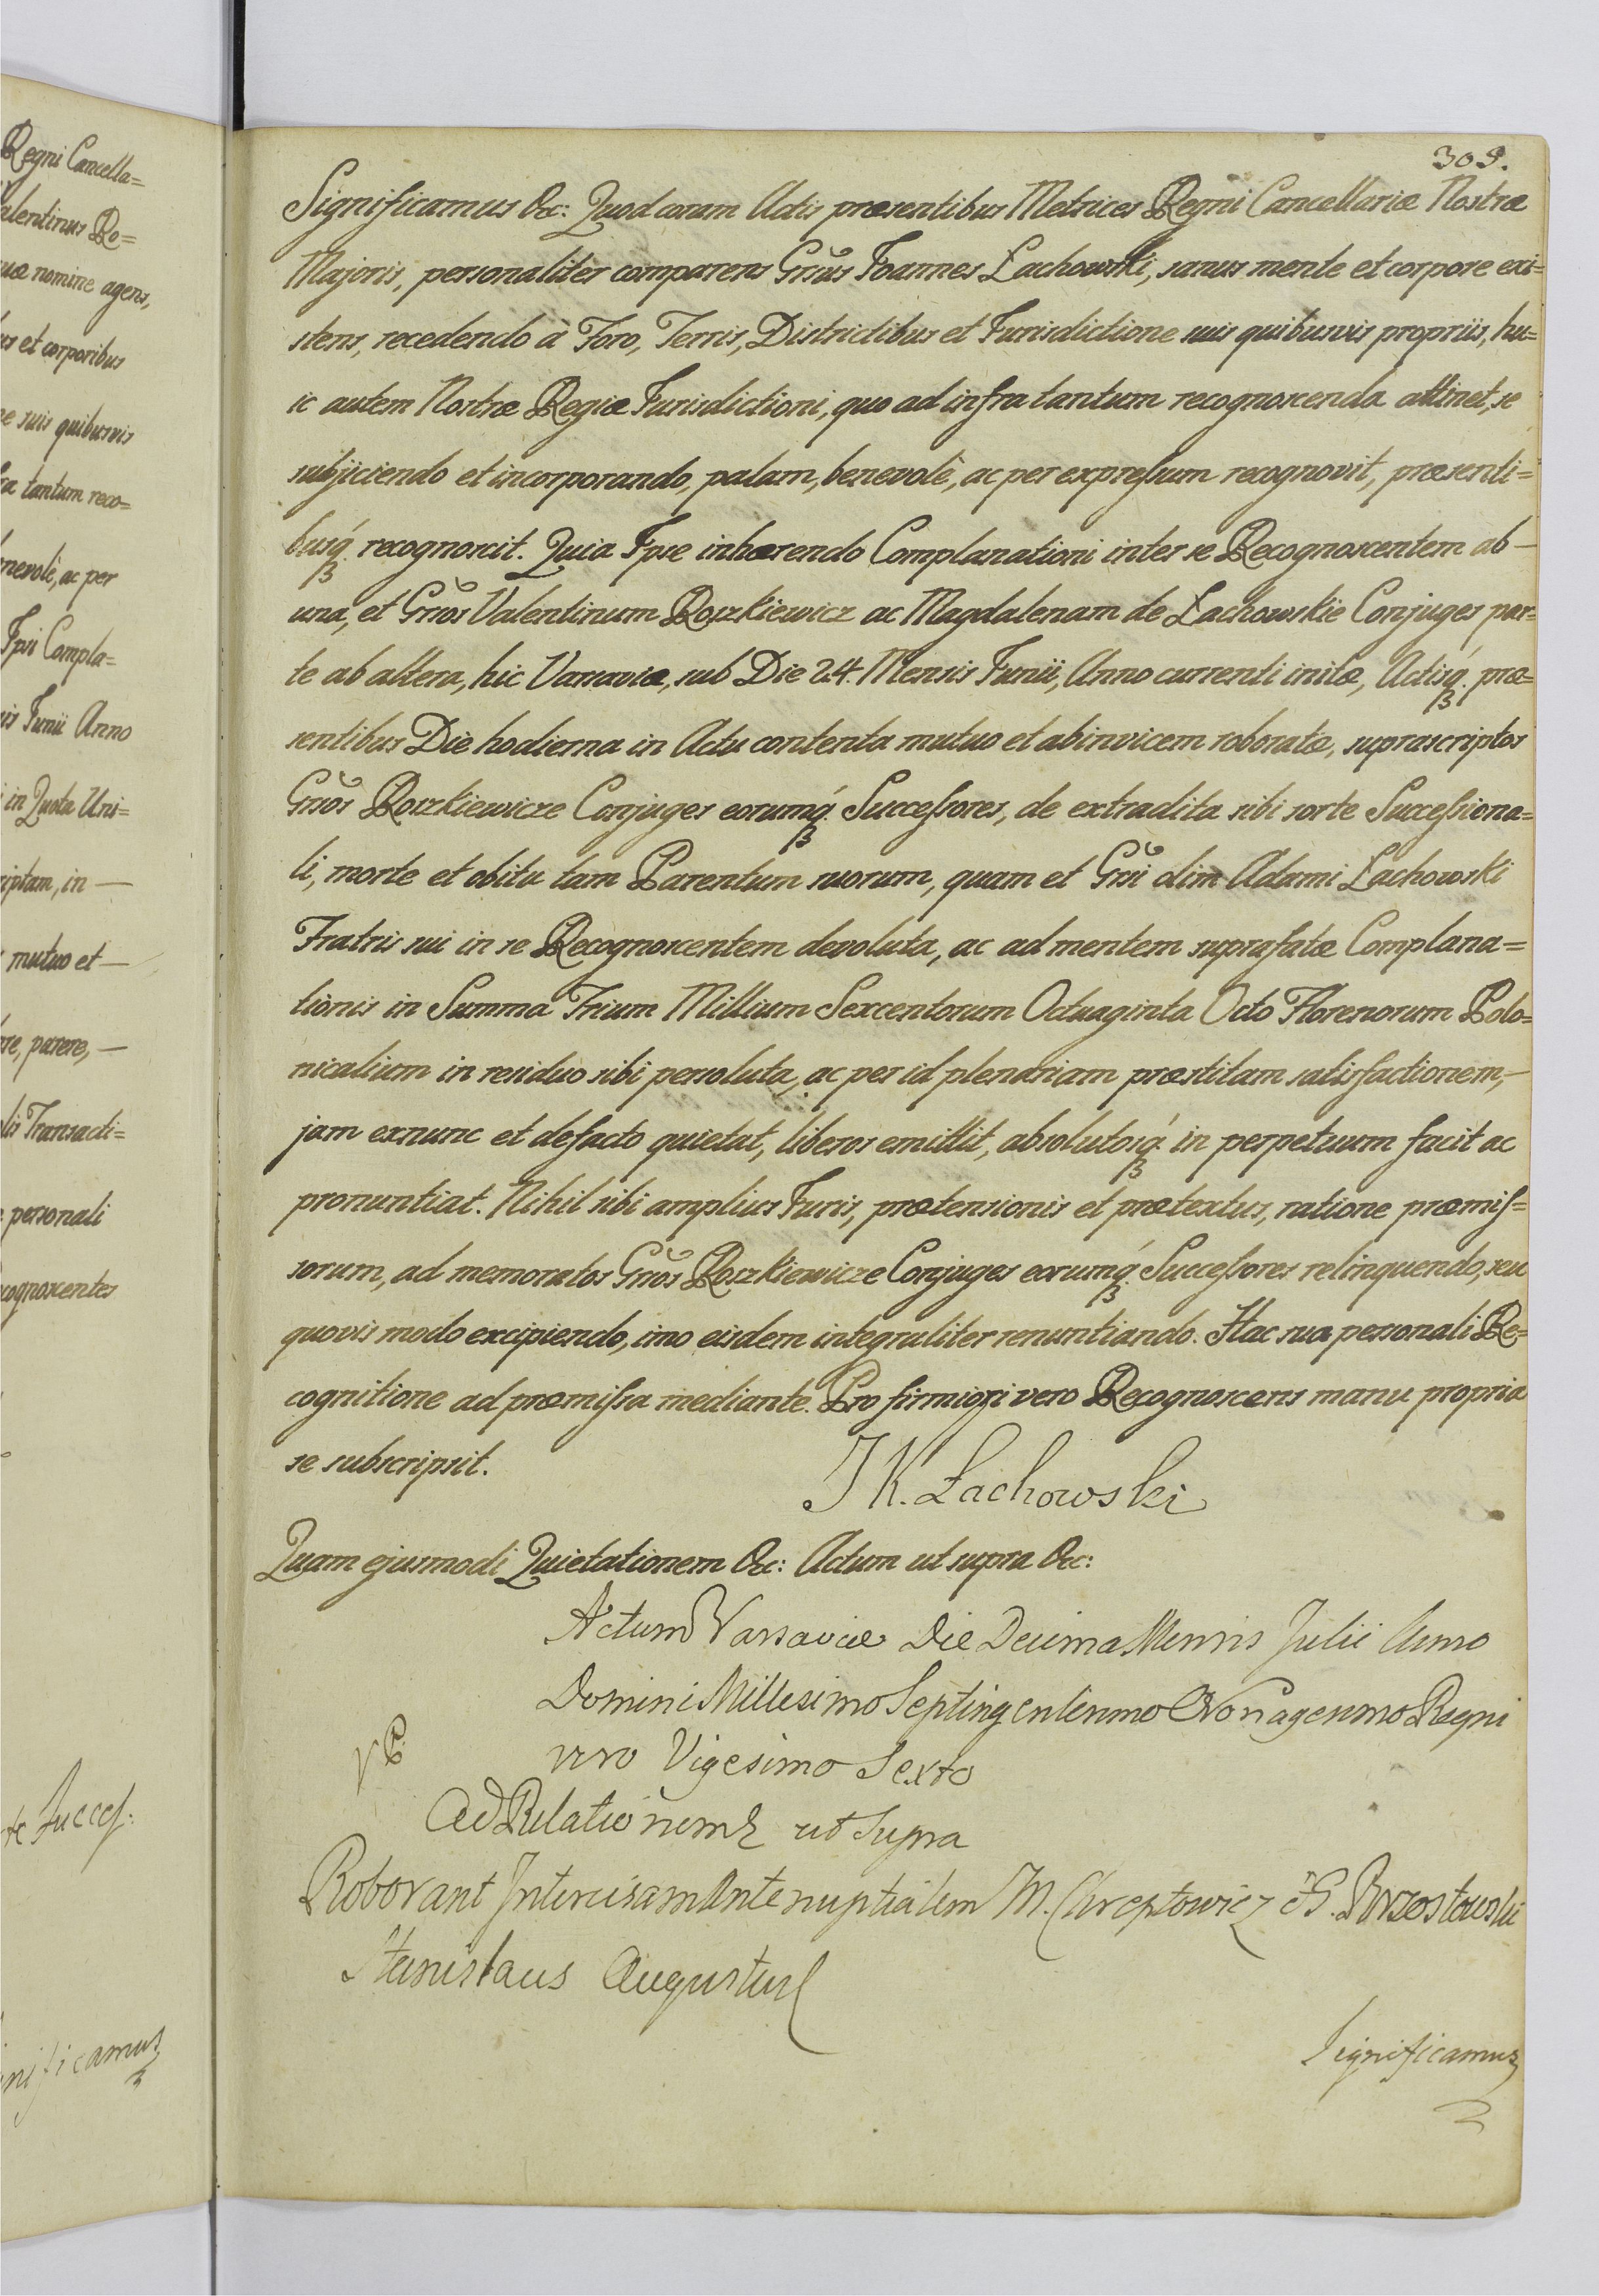 Regni Cancella=
alentinus Ro=
nomine agens,
et corporibus
suis quibusvis
tantum reco=
nevolè, ac per
Ipsi Compla=
Junii Anno
in Quota Uni=
riptam, in —
mutuo et —
re, parere, —
lis Transacti=
personali
cognoscentes
Succes:
nificamus
309.
Significamus &c: Quod coram Actis præsentibus Metrices Regni Cancellariæ Nostræ
Majoris, personaliter comparens Gñsus Joannes Łachowski, sanus mente et corpore exi=
stens, recedendo à Foro, Terris, Districtibus et Jurisdictione suis quibusvis propriis, hu=
ic autem Nostræ Regiæ Jurisdictioni, quo ad infra tantum recognoscenda attinet, se
subjiciendo et incorporando, palam, benevolè, ac per expressum recognovit, præsenti=
busq́ recognoscit. Quia Ipse inhærendo Complanationi inter se Recognoscentem ab —
una, et Gñsos Valentinum Roszkiewicz ac Magdalenam de Łachowskie Conjuges par=
te ab altera, hic Varsaviæ, sub Die 24. Mensis Junii, Anno currenti initæ, Actisq́ præ=
sentibus Die hodierna in Actu contenta mutuo et abinvicem roboratæ, suprascriptos
Gñsos Roszkiewicze Conjuges eorumq́ Successores, de extradita sibi sorte Successiona=
li, morte et obitu tam Parentum suorum, quam et Gñsi olim Adami Łachowski
Fratris sui in se Recognoscentem devoluta, ac ad mentem suprafatæ Complana=
tionis in Summa Trium Millium Sexcentorum Octuaginta Octo Florenorum Polo=
nicalium in residuo sibi persoluta, ac per id plenariam præstitam satisfactionem, —
jam exnunc et defacto quietat, liberos emittit, absolutosq́ in perpetuum facit ac
pronuntiat. Nihil sibi amplius Juris, prætensionis et prætextus, ratione præmis=
sorum, ad memoratos Gñsos Roszkiewicze Conjuges eorumq́ Successores relinquendo, seu
quovis modo excipiendo, imo eisdem integraliter renuntiando. Hac sua personali Re=
cognitione ad præmissa mediante. Pro firmiori vero Recognoscens manu propria
se subscripsit.
J K. Łachowski
Quam ejusmodi Quietationem &c: Actum ut supra &c:
Actum Varsaviæ Die Decima Mensis Julii Anno
Domini Millesimo Septingentesimo Nonagesimo Regni
vero Vigesimo Sexto
Ad Relationem ut supra
Roborant Intercisam Antenuptialem M. Chreptowicz & G. Brzostowski
Stanislaus Augustus
Significamus